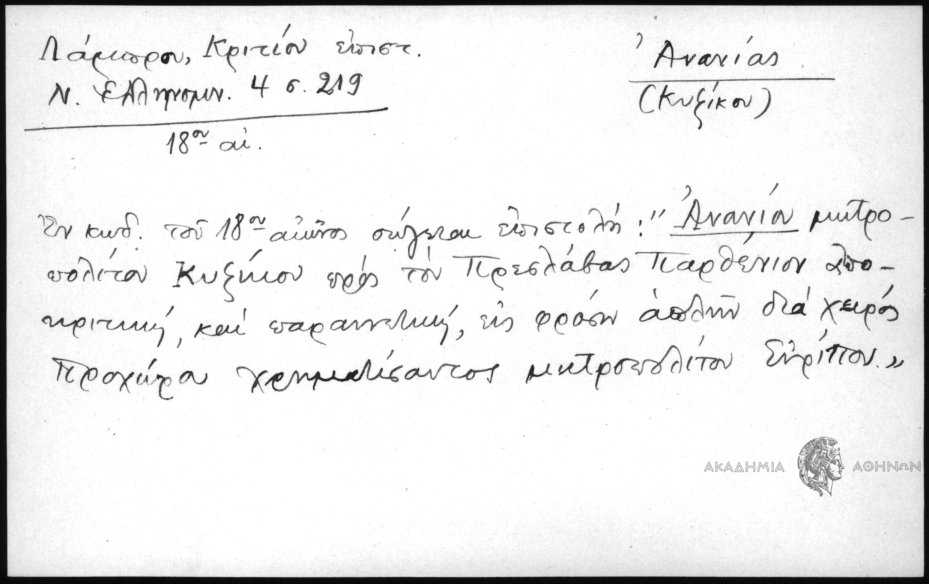 Λάμπρου, Κριτίου ἐπιστ.
Ν. Ἑλληνομν. 4 σ. 219
18ου αἰ.
Ἀνανίας
(Κυζίκου)
Ἐν κωδ. τοῦ 18ου αἰῶνος σώζεται ἐπιστολή: "Ἀνανίου μητρο-
πολίτου Κυζίκου πρὸς τὸν Πρεσλάβας Παρθένιον ἀπο-
κριτική, καὶ παραινετική, εἰς φράσιν ἁπλῆν διὰ χειρὸς
Προχόρου χρηματίσαντος μητροπολίτου Εὐρίπου.»
ΑΚΑΔΗΜΙΑ ΑΘΗΝΩΝ